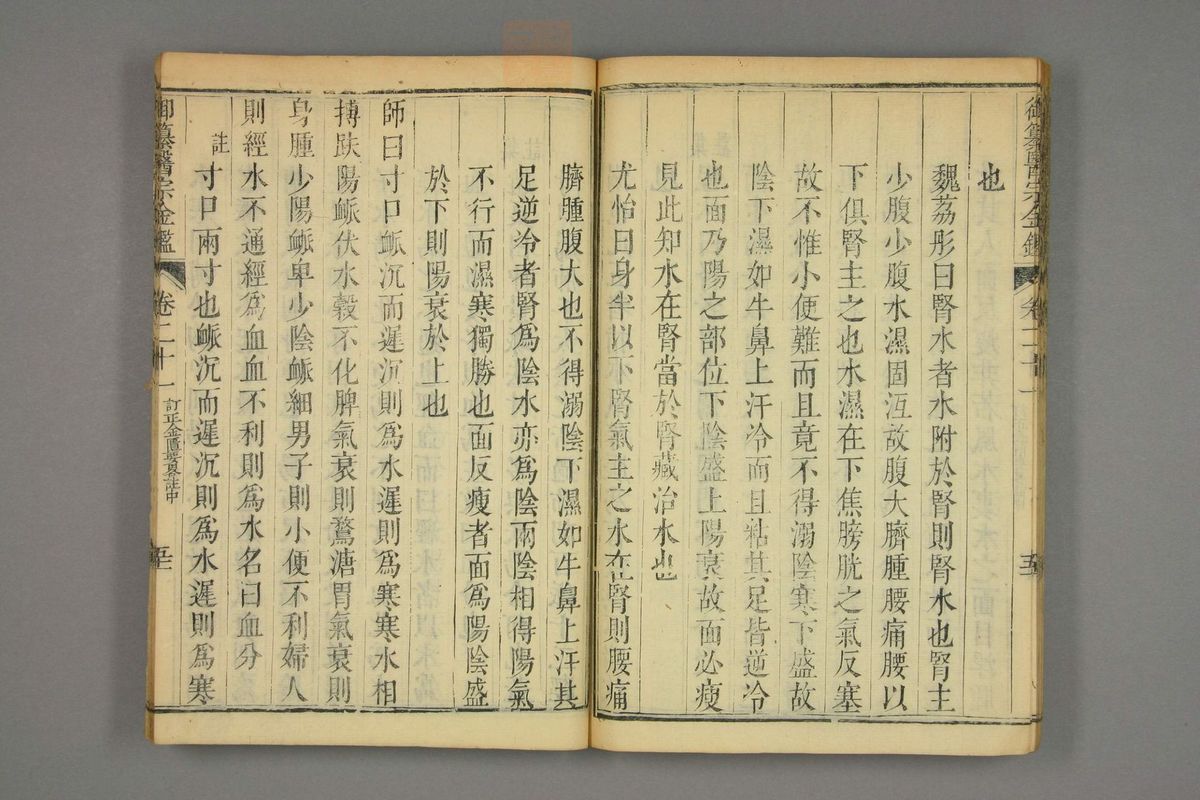 御纂醫宗金鑑 卷二十一 五
也
魏荔彤曰腎水者水附於腎則腎水也腎主
少腹少腹水濕固沍故腹大臍腫腰痛腰以
下俱腎主之也水濕在下焦膀胱之氣反塞
故不惟小便難而且竟不得溺陰寒下盛故
陰下濕如牛鼻上汗冷而且粘其足皆逆冷
也面乃陽之部位下陰盛上陽衰故面必瘦
見此知水在腎當於腎藏治水也
尤怡曰身半以下腎氣主之水在腎則腰痛
臍腫腹大也不得溺陰下濕如牛鼻上汗其
足逆冷者腎爲陰水亦爲陰兩陰相得陽氣
不行而濕寒獨勝也面反瘦者面爲陽陰盛
於下則陽衰於上也
師曰寸口䘑沉而遲沉則爲水遲則爲寒寒水相
搏趺陽䘑伏水穀不化脾氣衰則鶩溏胃氣衰則
身腫少陽䘑卑少陰䘑細男子則小便不利婦人
則經水不通經爲血血不利則爲水名曰血分
註 寸口兩寸也䘑沉而遲沉則爲水遲則爲寒
御纂醫宗金鑑 卷二十一 訂正金匱要畧註中